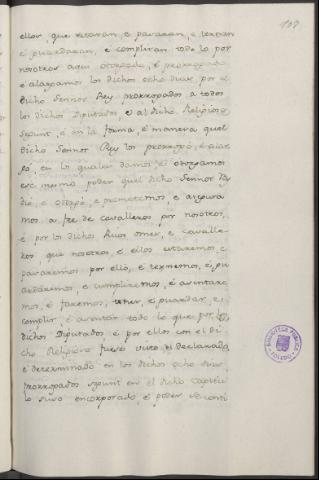 109
ellos, que estaran, e pasaran, e ternan
e guardaran, e compliran todo lo por
nosotros aqui otorgado, é prorrogado
é alargamos los dichos ocho dias, por el
dicho Sennor Rey prorrogados a todos
los dichos Diputados, e al dicho Religioso
segunt, é en la forma, é manera quel
dicho Sennor Rey los prorrogó, é alar
gó, en los quales damos é otorgamos
ese mesmo poder quel dicho Sennor Rey
dió, e otorgó, e prometemos, e asegura
mos a fee de cavalleros por nosotros,
é por los dichos Ricos omes, e cavalle
ros, que nosotros, e ellos estaremos, e
pasaremos por ello, é ternemos, é gu
ardaremos, e cumpliremos, é
mos, é faremos, tener, e guardar, e
complir, é todo lo que por los
dichos Diputados é por ellos con el di
cho Religioso fuere visto e declarado
é determinado en los dichos ocho dias
prorrogados segunt en el dicho capitu
lo suso encorporado, e poder
BIBLIOTECA PUBLICA
TOLEDO